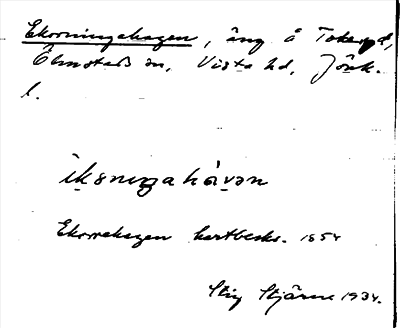 Ekorningahagen, äng å Tokeryd,
Ölmstads sn, Vista hd, Jönk.
l.
ìksnıŋahàvən
Ekornehagen kartbeskr. 1854
Stig Stjärne 1934.